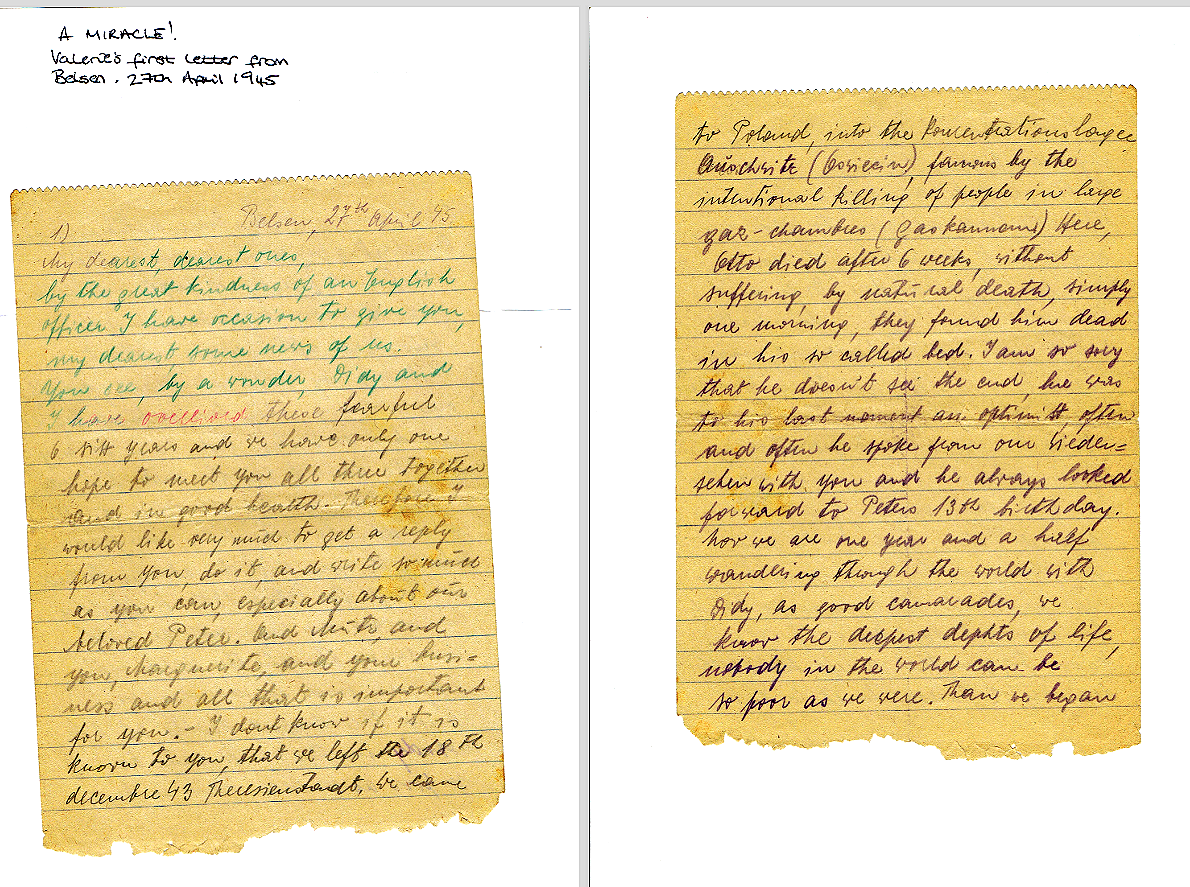 A MIRACLE!
Valerie's first letter from
Belsen. 27th April 1945
1)
Belsen, 27th April 45.
My dearest, dearest ones,
by the great kindness of an English
officer I have occasion to give you,
my dearest some news of us.
You see, by a wonder, Didy and
I have overlived these fearful
6 years and we have only one
hope to meet you all three together
and in good health. Therefore I
would like very much to get a reply
from you, do it, and write so much
as you can, especially about our
beloved Peter. And Mutz, and
you, Marguerite, and your busi-
ness and all that is important
for you. - I dont know if it is
known to you, that we left the 18th
decembre 43 Theresienstadt, we came
to Poland, into the Konzentrationslager
Auschwitz (Osviecin), famous by the
intentional killing of people in large
gaz-chambres (Gaskammern) Here,
Otto died after 6 weeks, without
suffering, by natural death, simply
one morning, they found him dead
in his so called bed. I am so sory
that he doesn't see the end, he was
to his last moment an optimist, often
and often he spoke from our Wieder=
sehen with you and he always looked
forward to Peters 13th birthday.
Nor we are one year and a half
wandering through the world with
Didy, as good camarades, we
know the deepest dephts of life,
nobody in the world can be
so poor as we were. Then we began